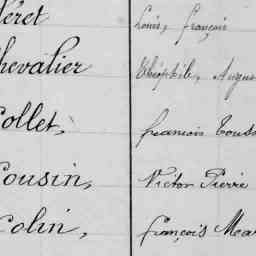 éret Louis, françois
hevalier Théophile, Augus
Collet, francois Touss
Cousin, Victor Pierre
Colin, françois Mar